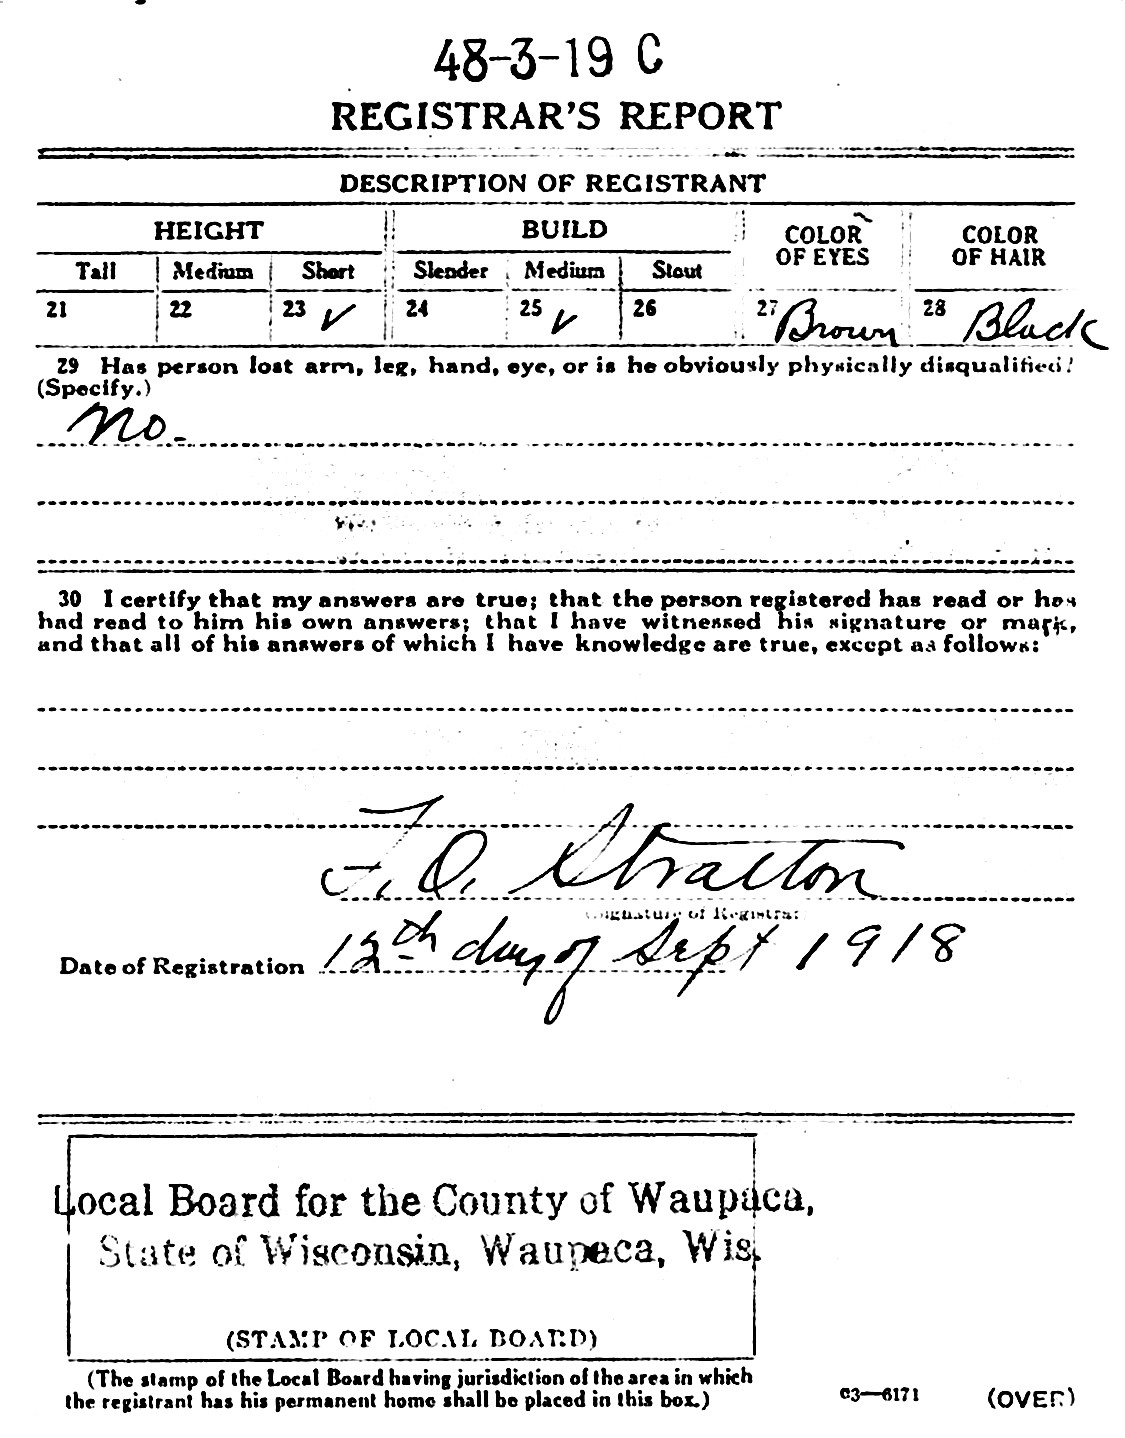 48-3-19 C
REGISTRAR'S REPORT
DESCRIPTION OF REGISTRANT
HEIGHT BUILD COLOR OF EYES COLOR OF HAIR
Tall Medium Short Slender Medium Stout
21 22 23 ✓ 24 25 ✓ 26 27 Brown 28 Black
29 Has person lost arm, leg, hand, eye, or is he obviously physically disqualified?
(Specify.)
No.
30 I certify that my answers are true; that the person registered has read or has
had read to him his own answers; that I have witnessed his signature or mark,
and that all of his answers of which I have knowledge are true, except as follows:
F. O. Stratton
Signature of Registrar
Date of Registration 12th day of Sept 1918
Local Board for the County of Waupaca,
State of Wisconsin, Waupaca, Wis.
(STAMP OF LOCAL BOARD)
(The stamp of the Local Board having jurisdiction of the area in which
the registrant has his permanent home shall be placed in this box.)
03—6171 (OVER)